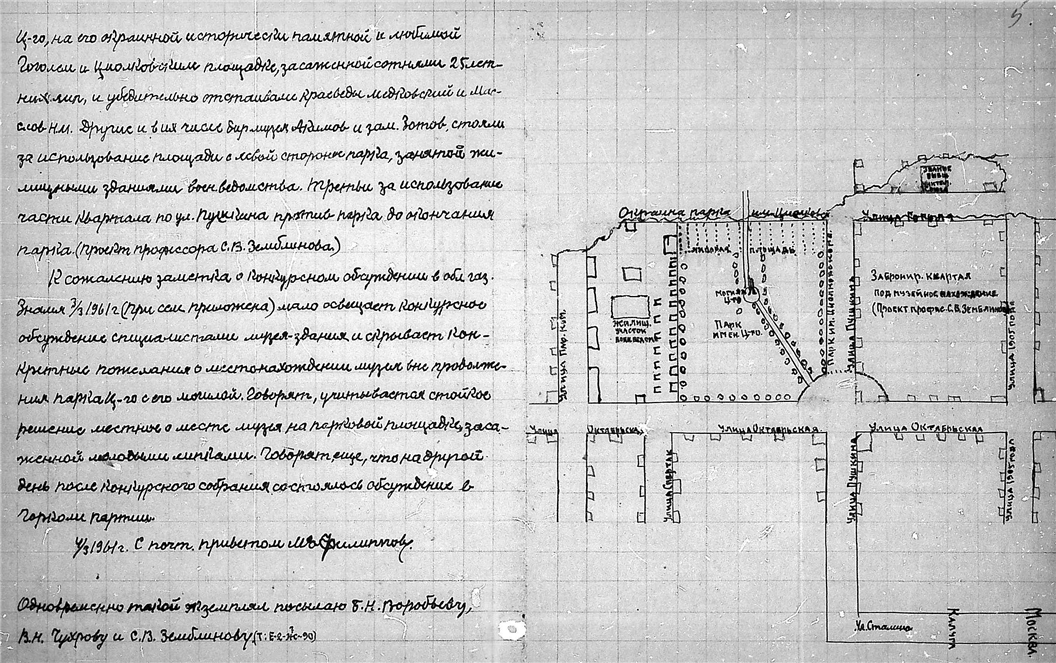 Ц-го, на его окраинной исторически памятной и любимой
Гоголем и Циолковским площадке, засаженной сотнями 25 лет-
них лип, и убедительно отстаивали краеведы Медковский и Мас-
слов Н.М. Другие и в их числе дир. музея Акимов и зам. Зотов, стояли
за использование площади с левой стороны парка, занятой жи-
лищными зданиями воен. ведомства. Третьи за использование
части квартала по ул. Пушкина против парка до окончания
парка. (Проект профессора С.В. Земблинова.)
К сожалению заметка о конкурсном обсуждении в обл. газ.
Знамя 3/3 1961 г. (при сем приложена) мало освещает конкурсное
обсуждение специалистами музея-здания и скрывает кон-
кретные пожелания о местонахождении музея вне продолже-
ния парка Ц-го с его могилой. Говорят, учитывается стойкое
решение местное о месте музея на парковой площадке, заса-
женной молодыми липками. Говорят еще, что на другой
день после конкурсного собрания состоялось обсуждение в
Горкоме партии.
4/3 1961 г. С почт. приветом Филиппов.
Одновременно такой экземпляр посылаю Б.Н. Воробьеву,
В.Н. Чухрову и С.В. Земблинову (Т: Б-2-Жс-90)
5.
Окраина парка им. Циолков
Улица Гоголя
площадь
Могила
Ц-го
Парк
имен. Ц-го.
Жилищ.
участок
Заброниp. квартал
под музейное нахождение
(Проект профес. С.В. Земблинова)
Парк им. Циолковского.
Улица Пушкина
Улица 1905 года
Улица
Октябрьская
Улица Октябрьская
Улица Октябрьская
Улица Спартак
Улица Пушкина
Улица 1905 года
Ул. Сталина
Калуга
Москва.